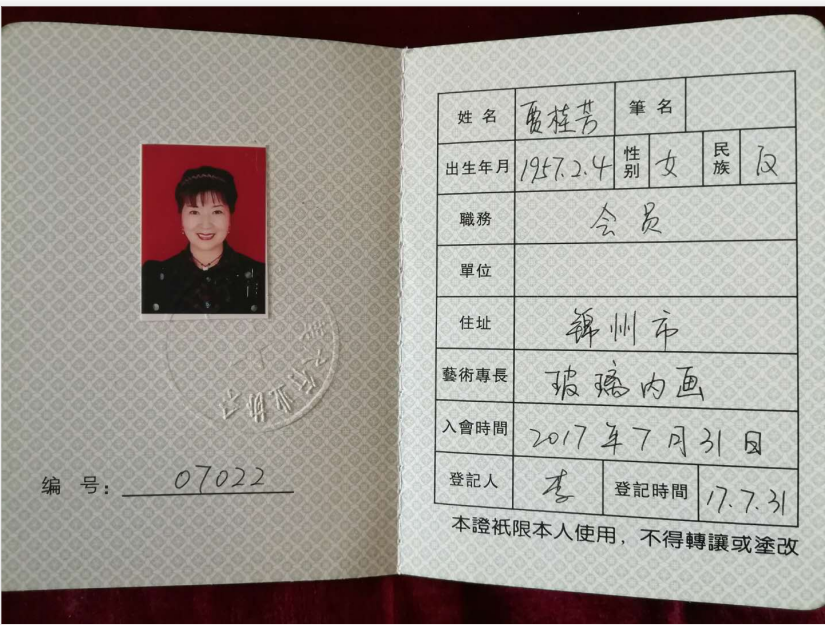 编 号: 07022
姓 名 贾桂芳 筆 名
出生年月 1957.2.4 性别 女 民族 汉
職務 会员
單位
住址 錦州市
藝術專長 玻璃内画
入會時間 2017年7月31日
登記人 李 登記時間 17.7.31
本證祇限本人使用，不得轉讓或塗改